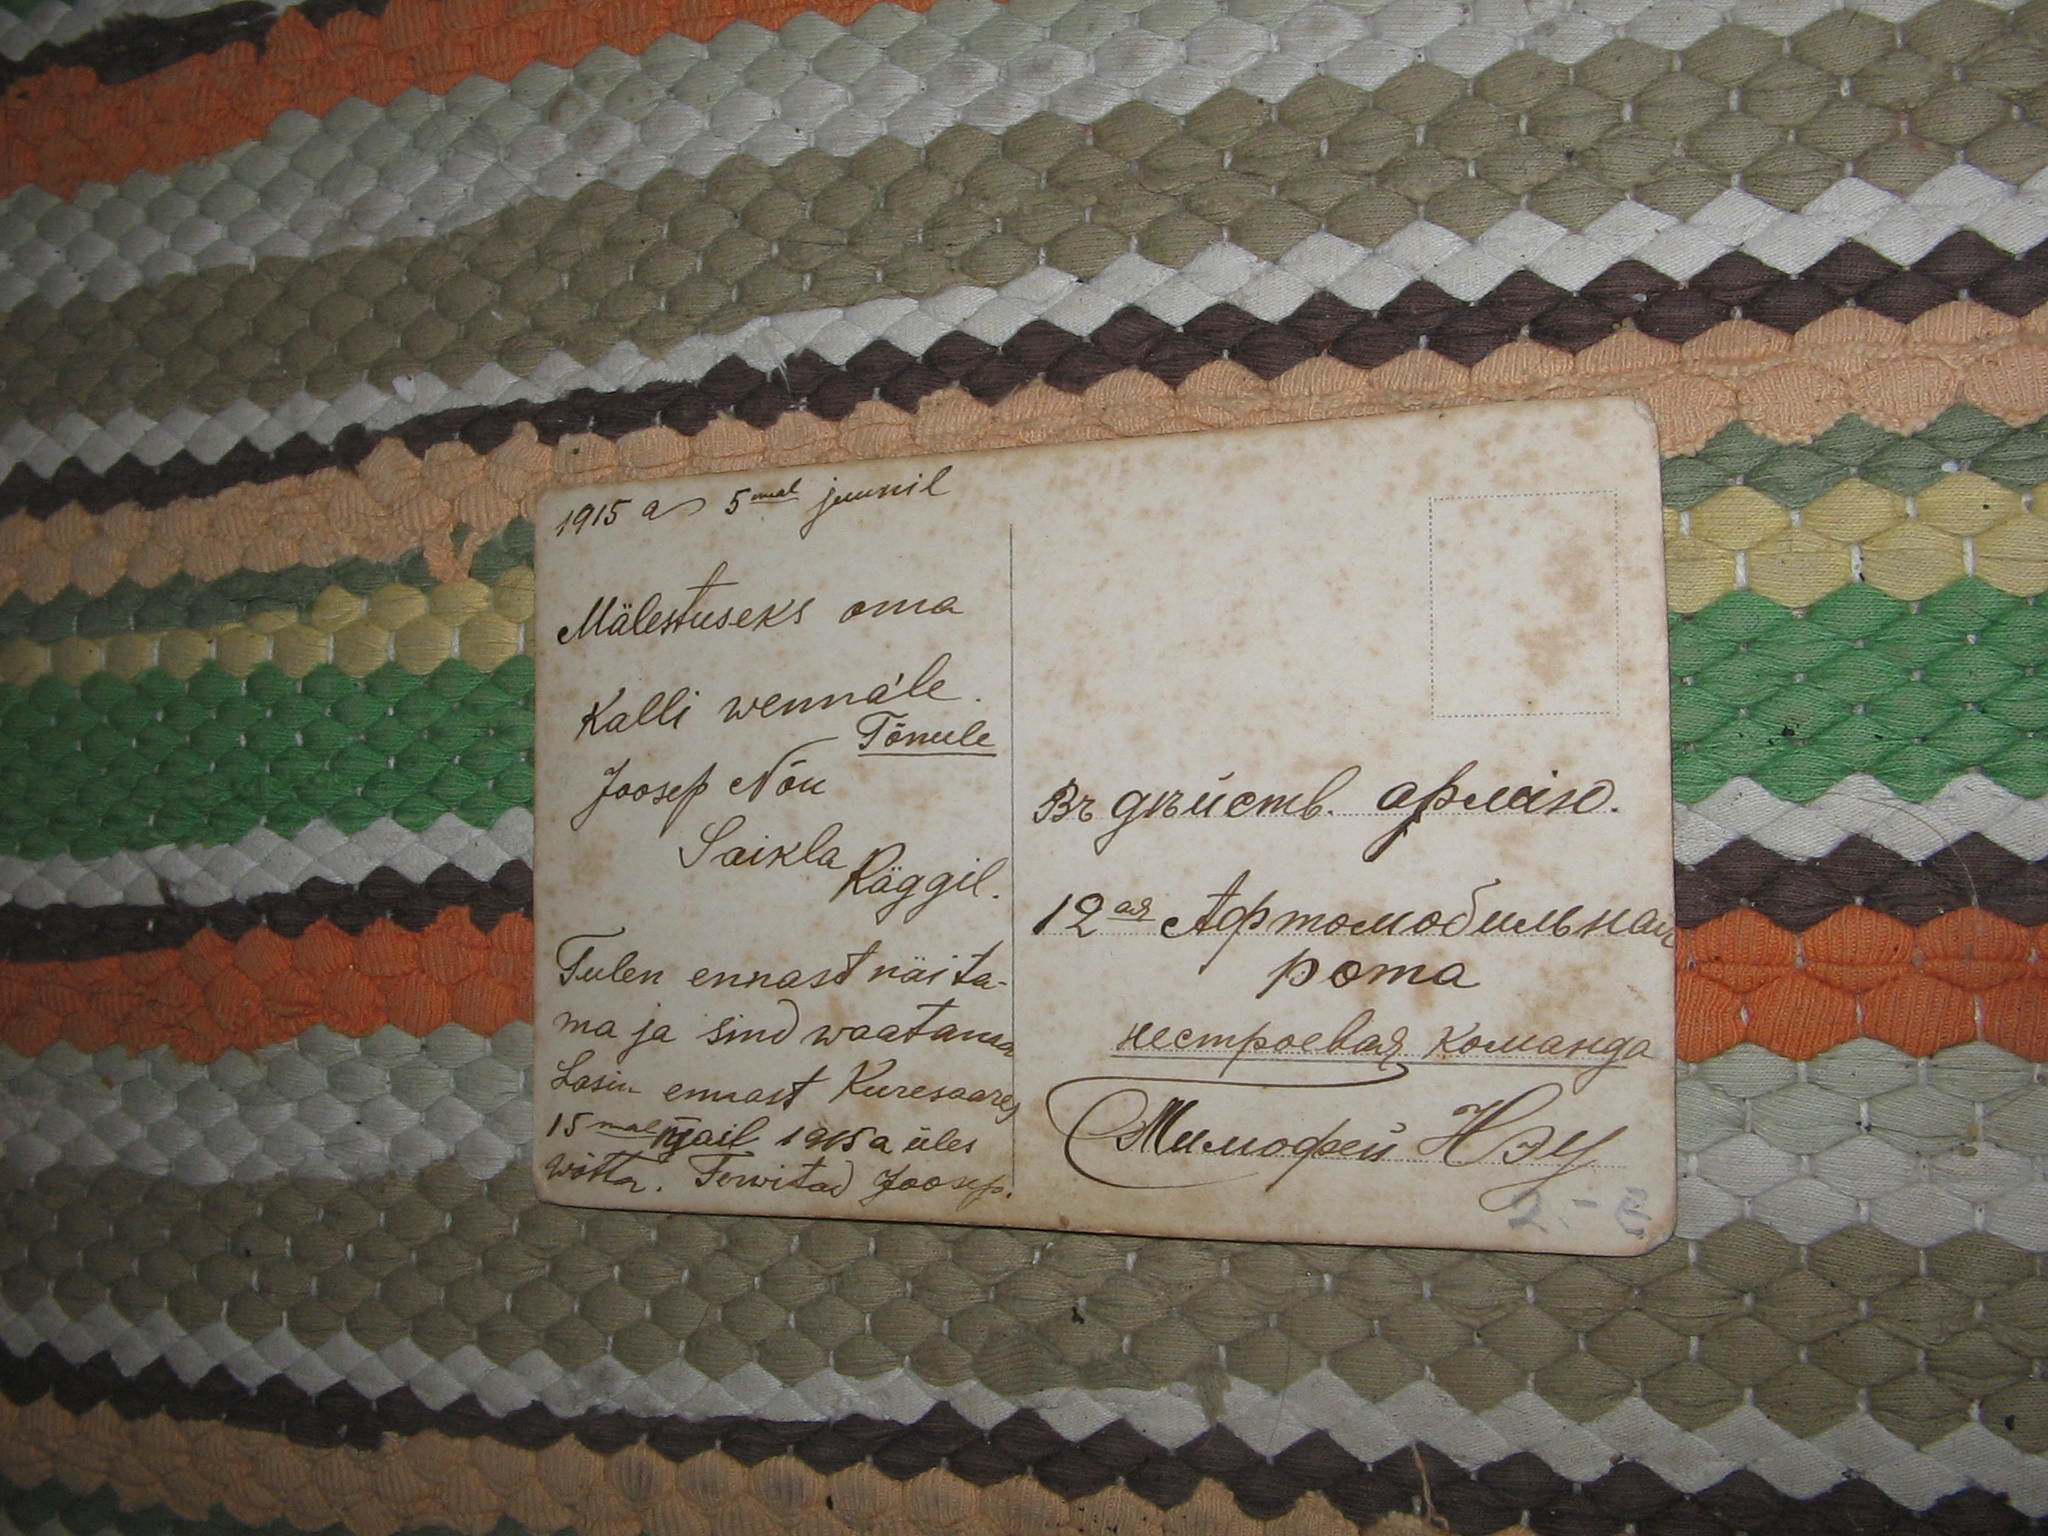 1915 a 5mal juunil
Mälestuseks oma
Kalli wennäle.
Tõnule
Joosep Nõu
Saikla Räggil.
Tulen ennast näita-
ma ja sind waatama
Lasin ennast Kuresaares
15mal mail 1915 a üles
wõtta. Terwitad Joosep.
Въ дѣйств. армiю.
12ая Афтомобильная
рота
нестроевая команда
Тимофей Нэу
2.-